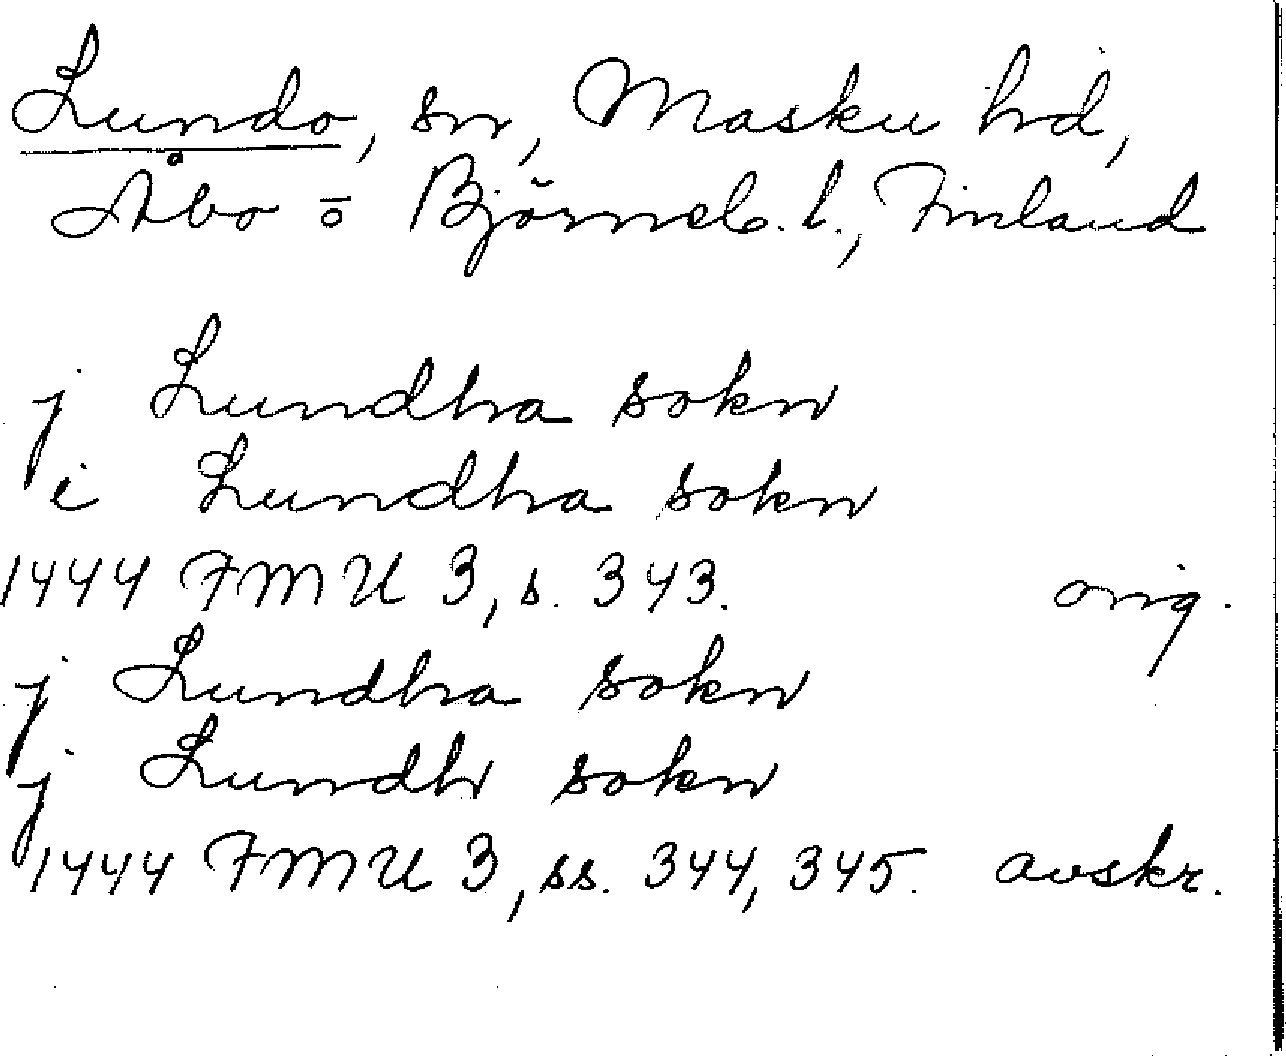 Lundo, sn, Masku hd,
Åbo o Björneb. l., Finland
j Lundha sokn
i Lundha sokn
1444 FMU 3, s. 343. orig.
j Lundha sokn
j Lundh sokn
1444 FMU 3, ss. 344, 345. avskr.